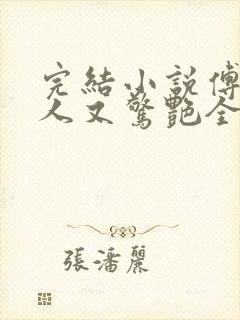 完結小說傅
人又驚艷全
張潘麗